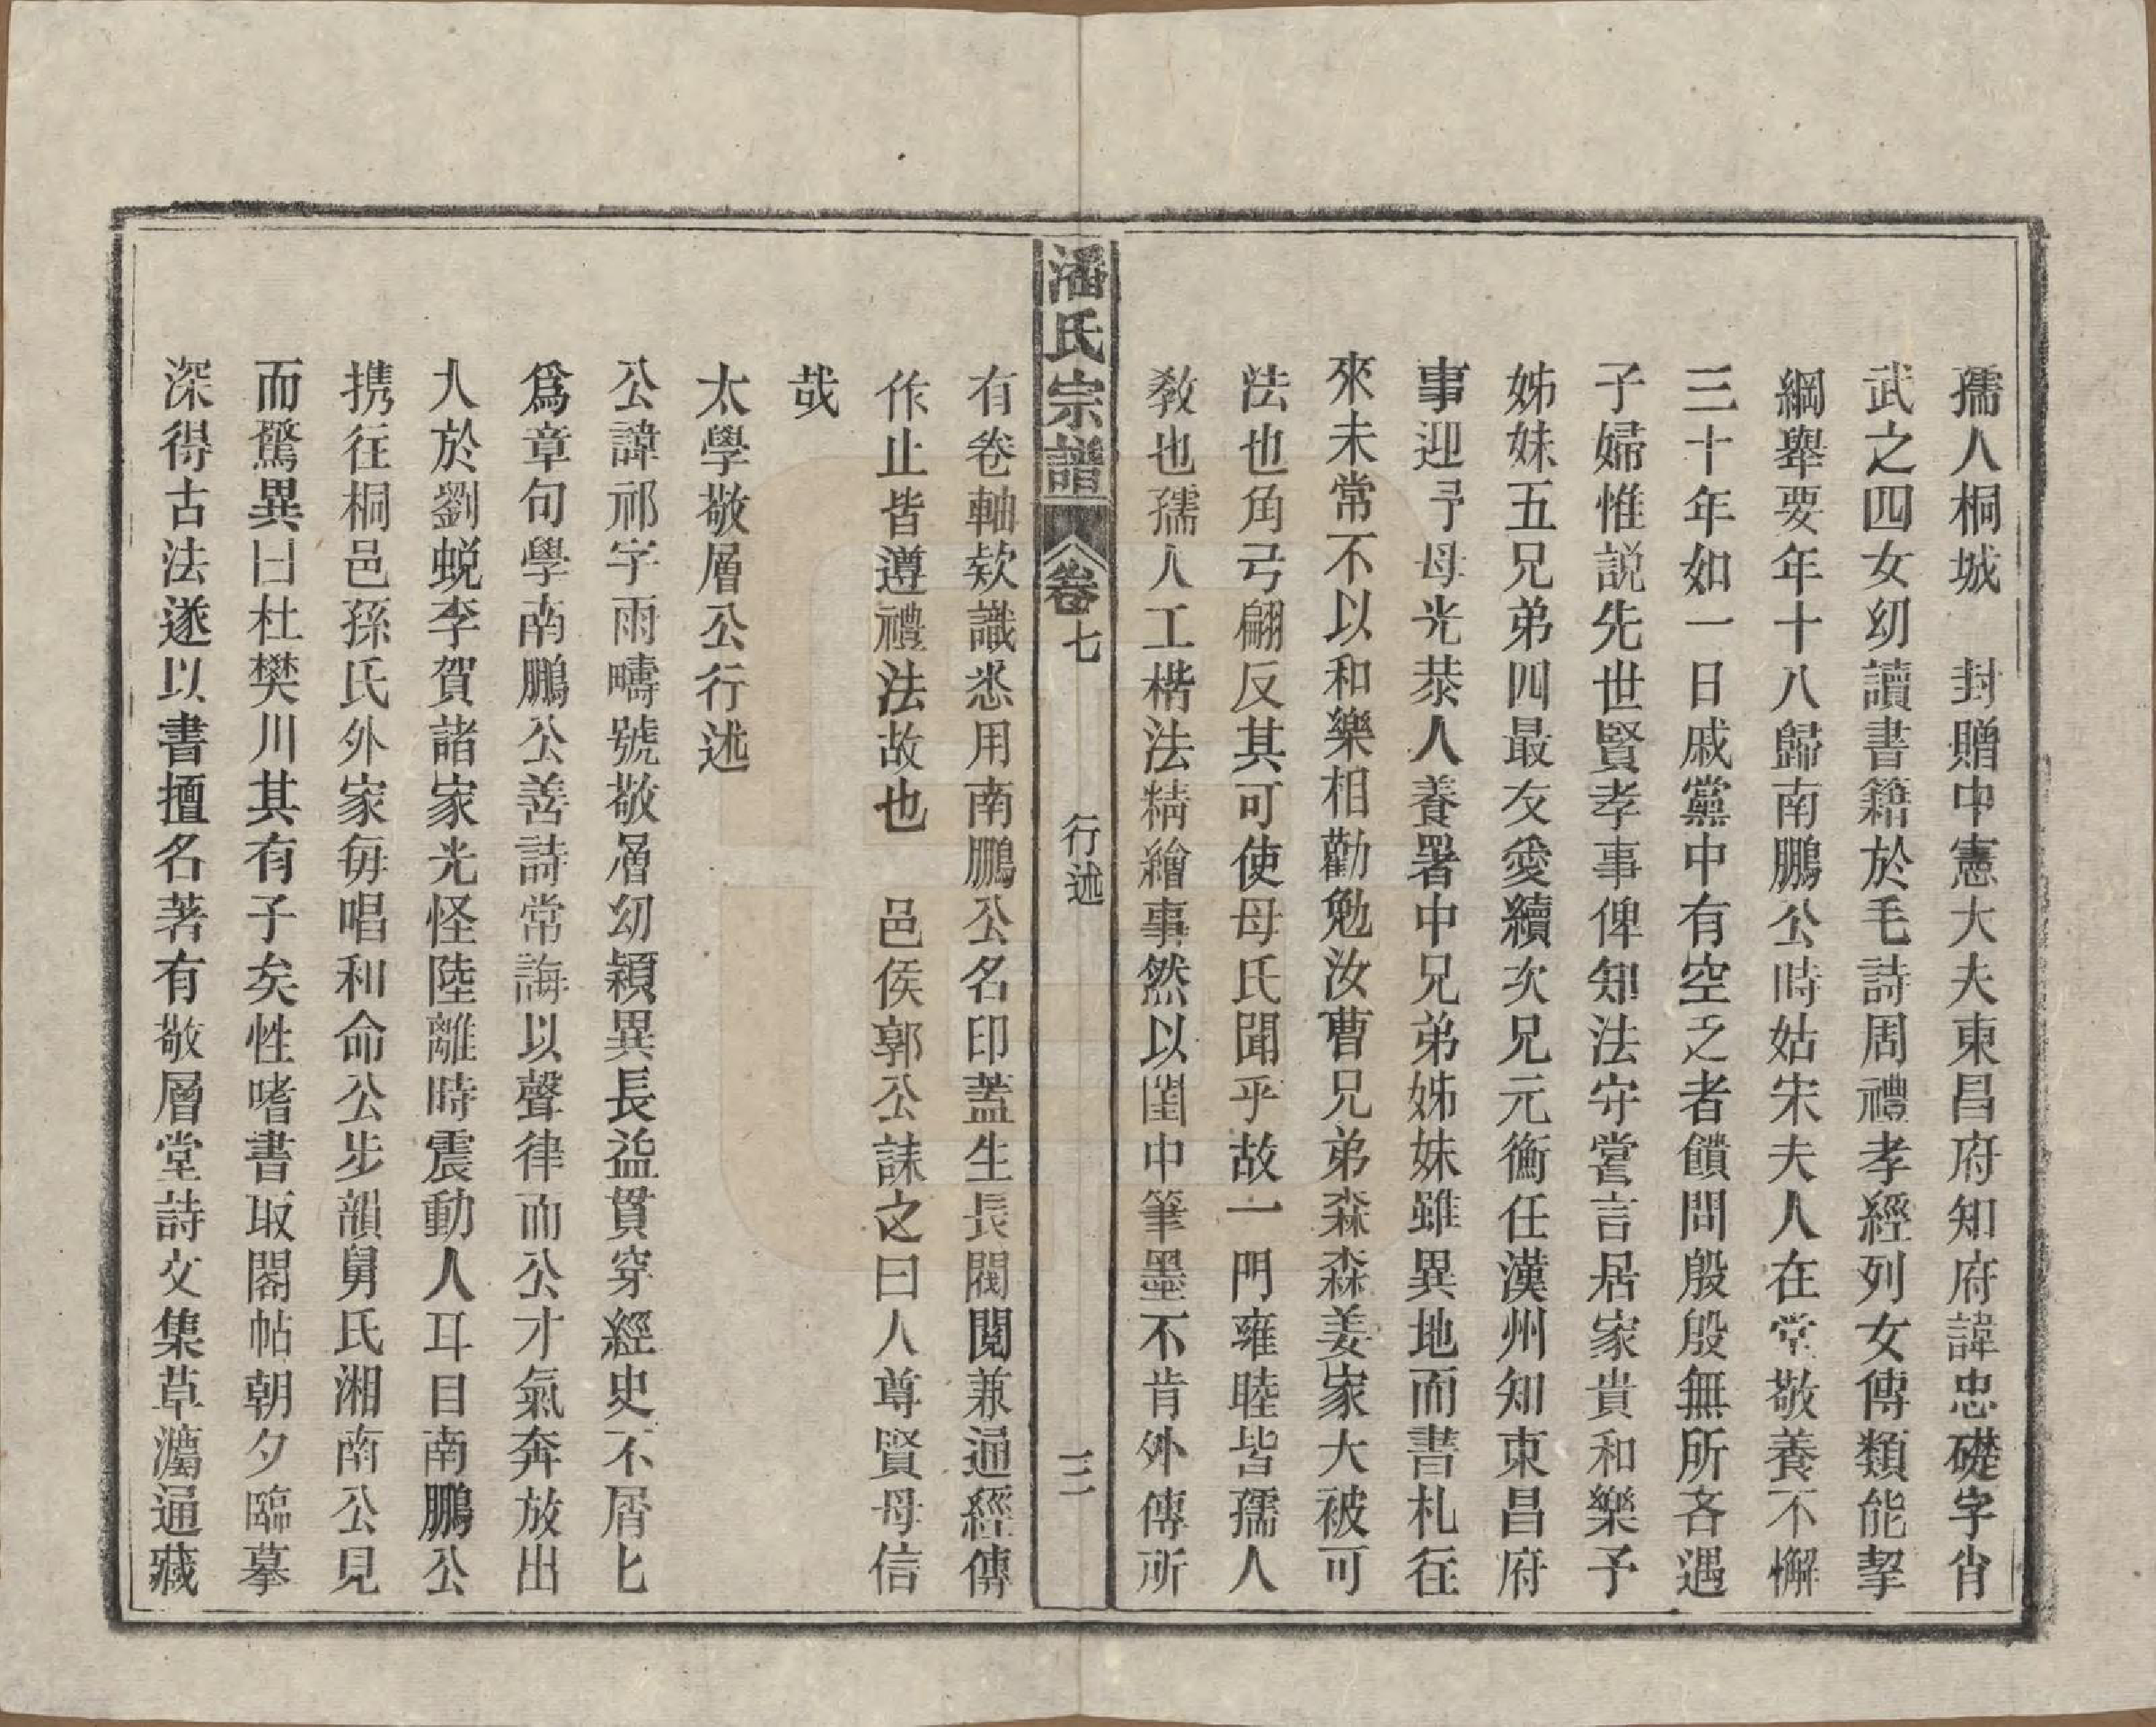 孺人桐城　封贈中憲大夫東昌府知府諱忠礎字肖
武之四女幼讀書籍於毛詩周禮孝經列女傳類能挈
綱舉要年十八歸南鵬公時姑宋夫人在堂敬養不懈
三十年如一日戚黨中有空乏者饋問殷殷無所吝遇
子婦惟説先世賢孝事俾知法守嘗言居家貴和樂予
姊妹五兄弟四最友愛續次兄元衡任漢州知東昌府
事迎予母光恭人養署中兄弟姊妹雖異地而書札往
來未常不以和樂相勸勉汝曹兄弟森森姜家大被可
法也角弓翩反其可使母氏聞乎故一門雍睦皆孺人
敎也孺人工楷法精繪事然以閨中筆墨不肯外傳所
潘氏宗譜　卷七　行述　三
有卷軸欵識悉用南鵬公名印蓋生長閥閱兼通經傳
作止皆遵禮法故也　邑侯郭公誄之曰人尊賢母信
哉
太學敬層公行述
公諱祁字雨疇號敬層幼穎異長益貫穿經史不屑匕
爲章句學南鵬公善詩常誨以聲律而公才氣奔放出
人於劉蜕李賀諸家光怪陸離時震動人耳目南鵬公
携往桐邑孫氏外家毎唱和命公步韻舅氏湘南公見
而驚異曰杜樊川其有子矣性嗜書取閣帖朝夕臨摹
深得古法遂以書擅名著有敬層堂詩文集草灊通藏